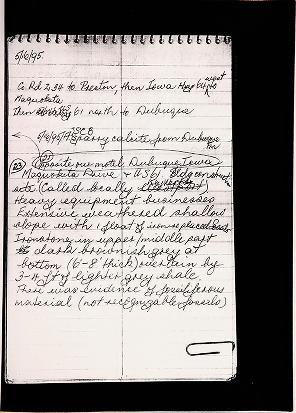 5/16/95.
Co. Rd Z34 to Preston, then Iowa Hwy 64 west to
Maquoketa
Then 61 north to Dubuque
5/16/95/1 Sparry calcite from Dubuque
23 (Opposite our motel Dubuque Iowa)
Maquoketa Drive & US61. Old
etc (Called locally
Heavy equipment businesses
Extensive weathered shallow
slope with float of iron replaced
Ironstone in upper/middle part
dark brownish grey at
bottom (6"-8" thick) overlain by
3-4 ft of lighter grey shale
There was evidence of fossiliferous
material (not recognizable fossils)